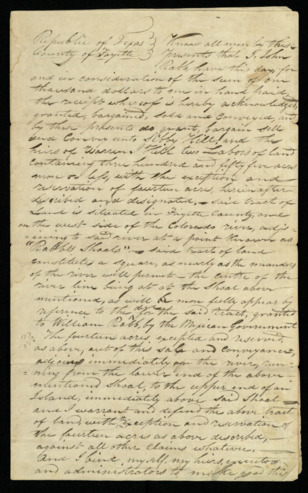 Republic of Texas } Know all men by this
County of Fayette } presents that I, John
Rabb, have this day for
and in consideration of the sum of one
thousand dollars to me in hand paid,
the receipt whereof is hereby acknowledged
granted, bargained, sold and conveyed, and
by these presents do grant, bargain sell
and convey unto Hill, and the
heirs of Warren Hill, two Labors of land
containing three hundred and fifty five acres
more or less, with the exception and
reservation of fourteen acres, hereinafter
described and designated, said tract of
Land is situated in Fayette County, and
on the east side of the Colorado river, adj
oining to said river at a point known as
"Rabb's Shoals" said tract of land
constitutes a square, as nearly as the meanders
of the river will permit the centre of the
river line being at the Shoal above
mentioned, as will be more fully appear by
reference to the for the said tract, granted
to William Rabb, by the Mexican Government
The fourteen acres, excepted and reserved,
as above, out of this sale and conveyance,
adjoins immediately on the river, run-
ning from the lower end of the above
mentioned Shoal, to the upper end of an
Island, immediately above said Shoal
and I warrant and defend the above tract
of land, with exception and reservation of
the fourteen acres as above described,
against all other claims whatever.
And I bind myself, my heirs, executors
and administrators to make good this